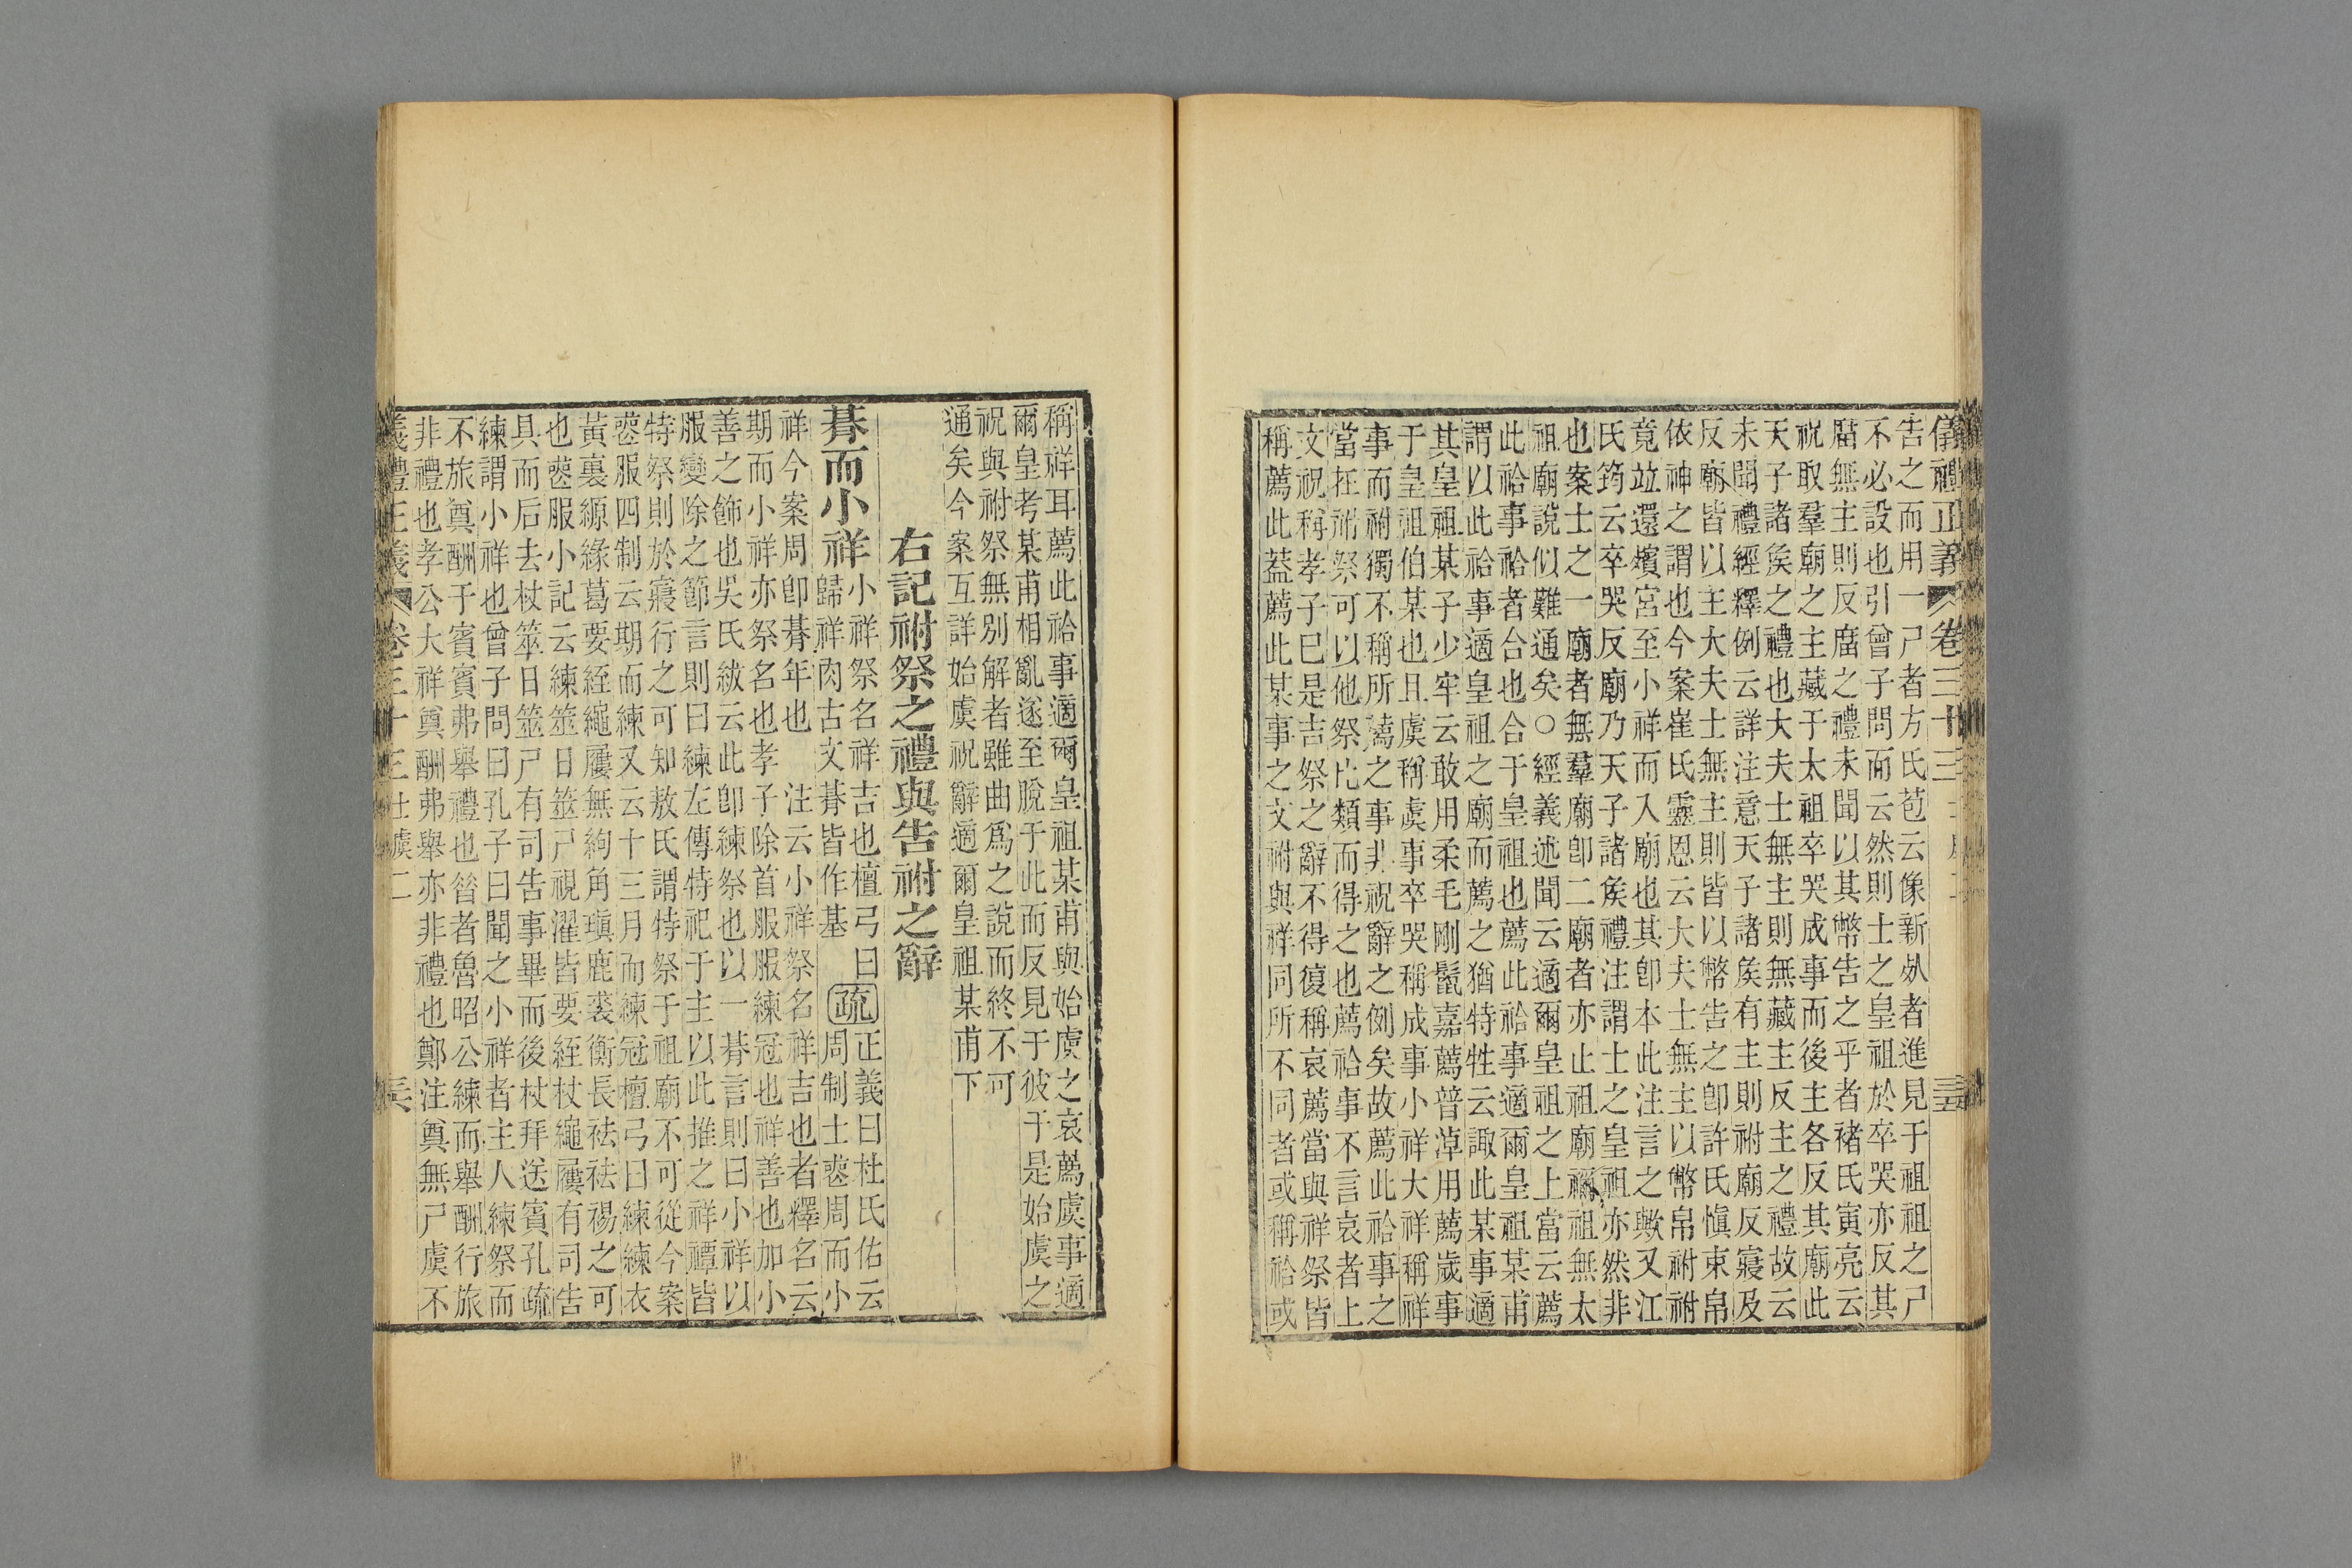 儀禮正義 卷三十三
告之而用一尸者方氏苞云像新䢼者進見于祖祖之尸
不必設也引曾子問而云然則士之皇祖於卒哭亦反其
廟無主則反廟之禮未聞以其幣告之乎者褚氏寅亮云
祝取羣廟之主藏于太祖卒哭成事而後主各反其廟此
天子諸矦之禮也大夫士無主則無藏主反主之禮故云
未聞禮經釋例云詳注意天子諸矦有主則祔廟反寢及
反廟皆以主大夫士無主則皆以幣告之卽許氏愼束帛
依神之謂也今案崔氏靈恩云大夫士無主以幣帛祔祔
竟竝還殯宮至小祥而入廟也其卽本此注言之歟又江
氏筠云卒哭反廟乃天子諸矦禮注謂士之皇祖亦然非
也案士之一廟者無羣廟卽二廟者亦止祖廟禰祖無太
祖廟說似難通矣○經義述聞云適爾皇祖之上當云薦
此祫事祫者合也合于皇祖也薦此祫事適爾皇祖某甫
謂以此祫事適皇祖之廟而薦之猶特牲云諏此某事適
其皇祖某子少牢云敢用柔毛剛鬣嘉薦普淖用薦歲事
于皇祖伯某也且虞稱虞事卒哭稱成事小祥大祥稱祥
事而祔獨不稱所薦之事非祝辭之例矣故薦此祫事之
當在祔祭可以他祭比類而得之也薦祫事不言哀者上
文祝稱孝子已是吉祭之辭不得復稱哀薦當與祥祭皆
稱薦此蓋薦此某事之文祔與祥同所不同者或稱祫或
稱祥耳薦此祫事適爾皇祖某甫與始虞之哀薦虞事適
爾皇考某甫相亂遂至脫于此而反見于彼于是始虞之
祝與祔祭無別解者雖曲爲之說而終不可
通矣今案互詳始虞祝辭適爾皇祖某甫下
右記祔祭之禮與告祔之辭
朞而小祥
小祥祭名祥吉也檀弓曰
歸祥肉古文朞皆作基
疏
正義曰杜氏佑云
周制士䘮周而小
祥今案周卽朞年也 注云小祥祭名祥吉也者釋名云
期而小祥亦祭名也孝子除首服服練冠也祥善也加小
善之飾也吳氏紱云此卽練祭也以一朞言則曰小祥以
服變除之節言則曰練左傳特祀于主以此推之祥禫皆
特祭則於寢行之可知敖氏謂特祭于祖廟不可從今案
䘮服四制云期而練又云十三月而練冠檀弓曰練練衣
黃裏縓緣葛要絰繩屨無絇角瑱鹿裘衡長袪袪裼之可
也䘮服小記云練筮日筮尸視濯皆要絰杖繩屨有司告
具而后去杖筮日筮尸有司告事畢而後杖拜送賓孔疏
練謂小祥也曾子問曰孔子曰聞之小祥者主人練祭而
不旅奠酬于賓賓弗舉禮也昝者魯昭公練而舉酬行旅
非禮也孝公大祥奠酬弗舉亦非禮也鄭注奠無尸虞不